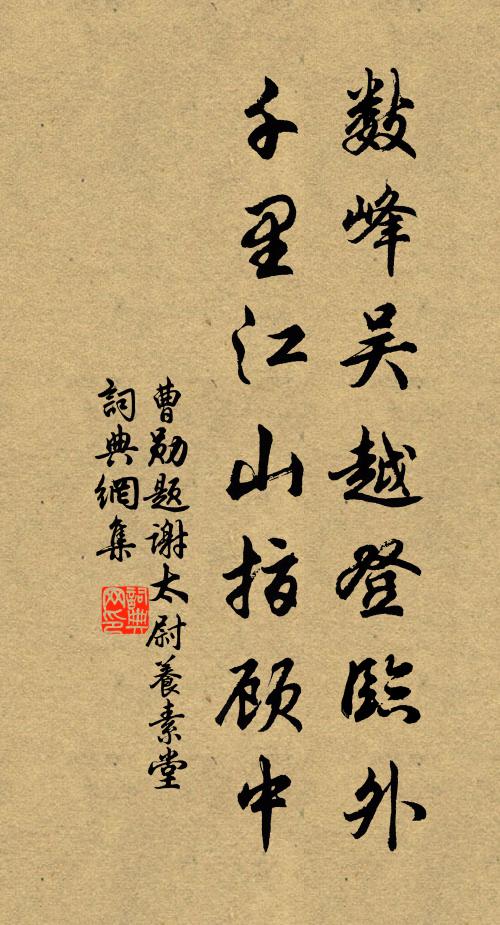 数峰吴越登臨外
千里江山指顾中
曹勛题謝太尉養素堂
詞典網集
詞典
网印